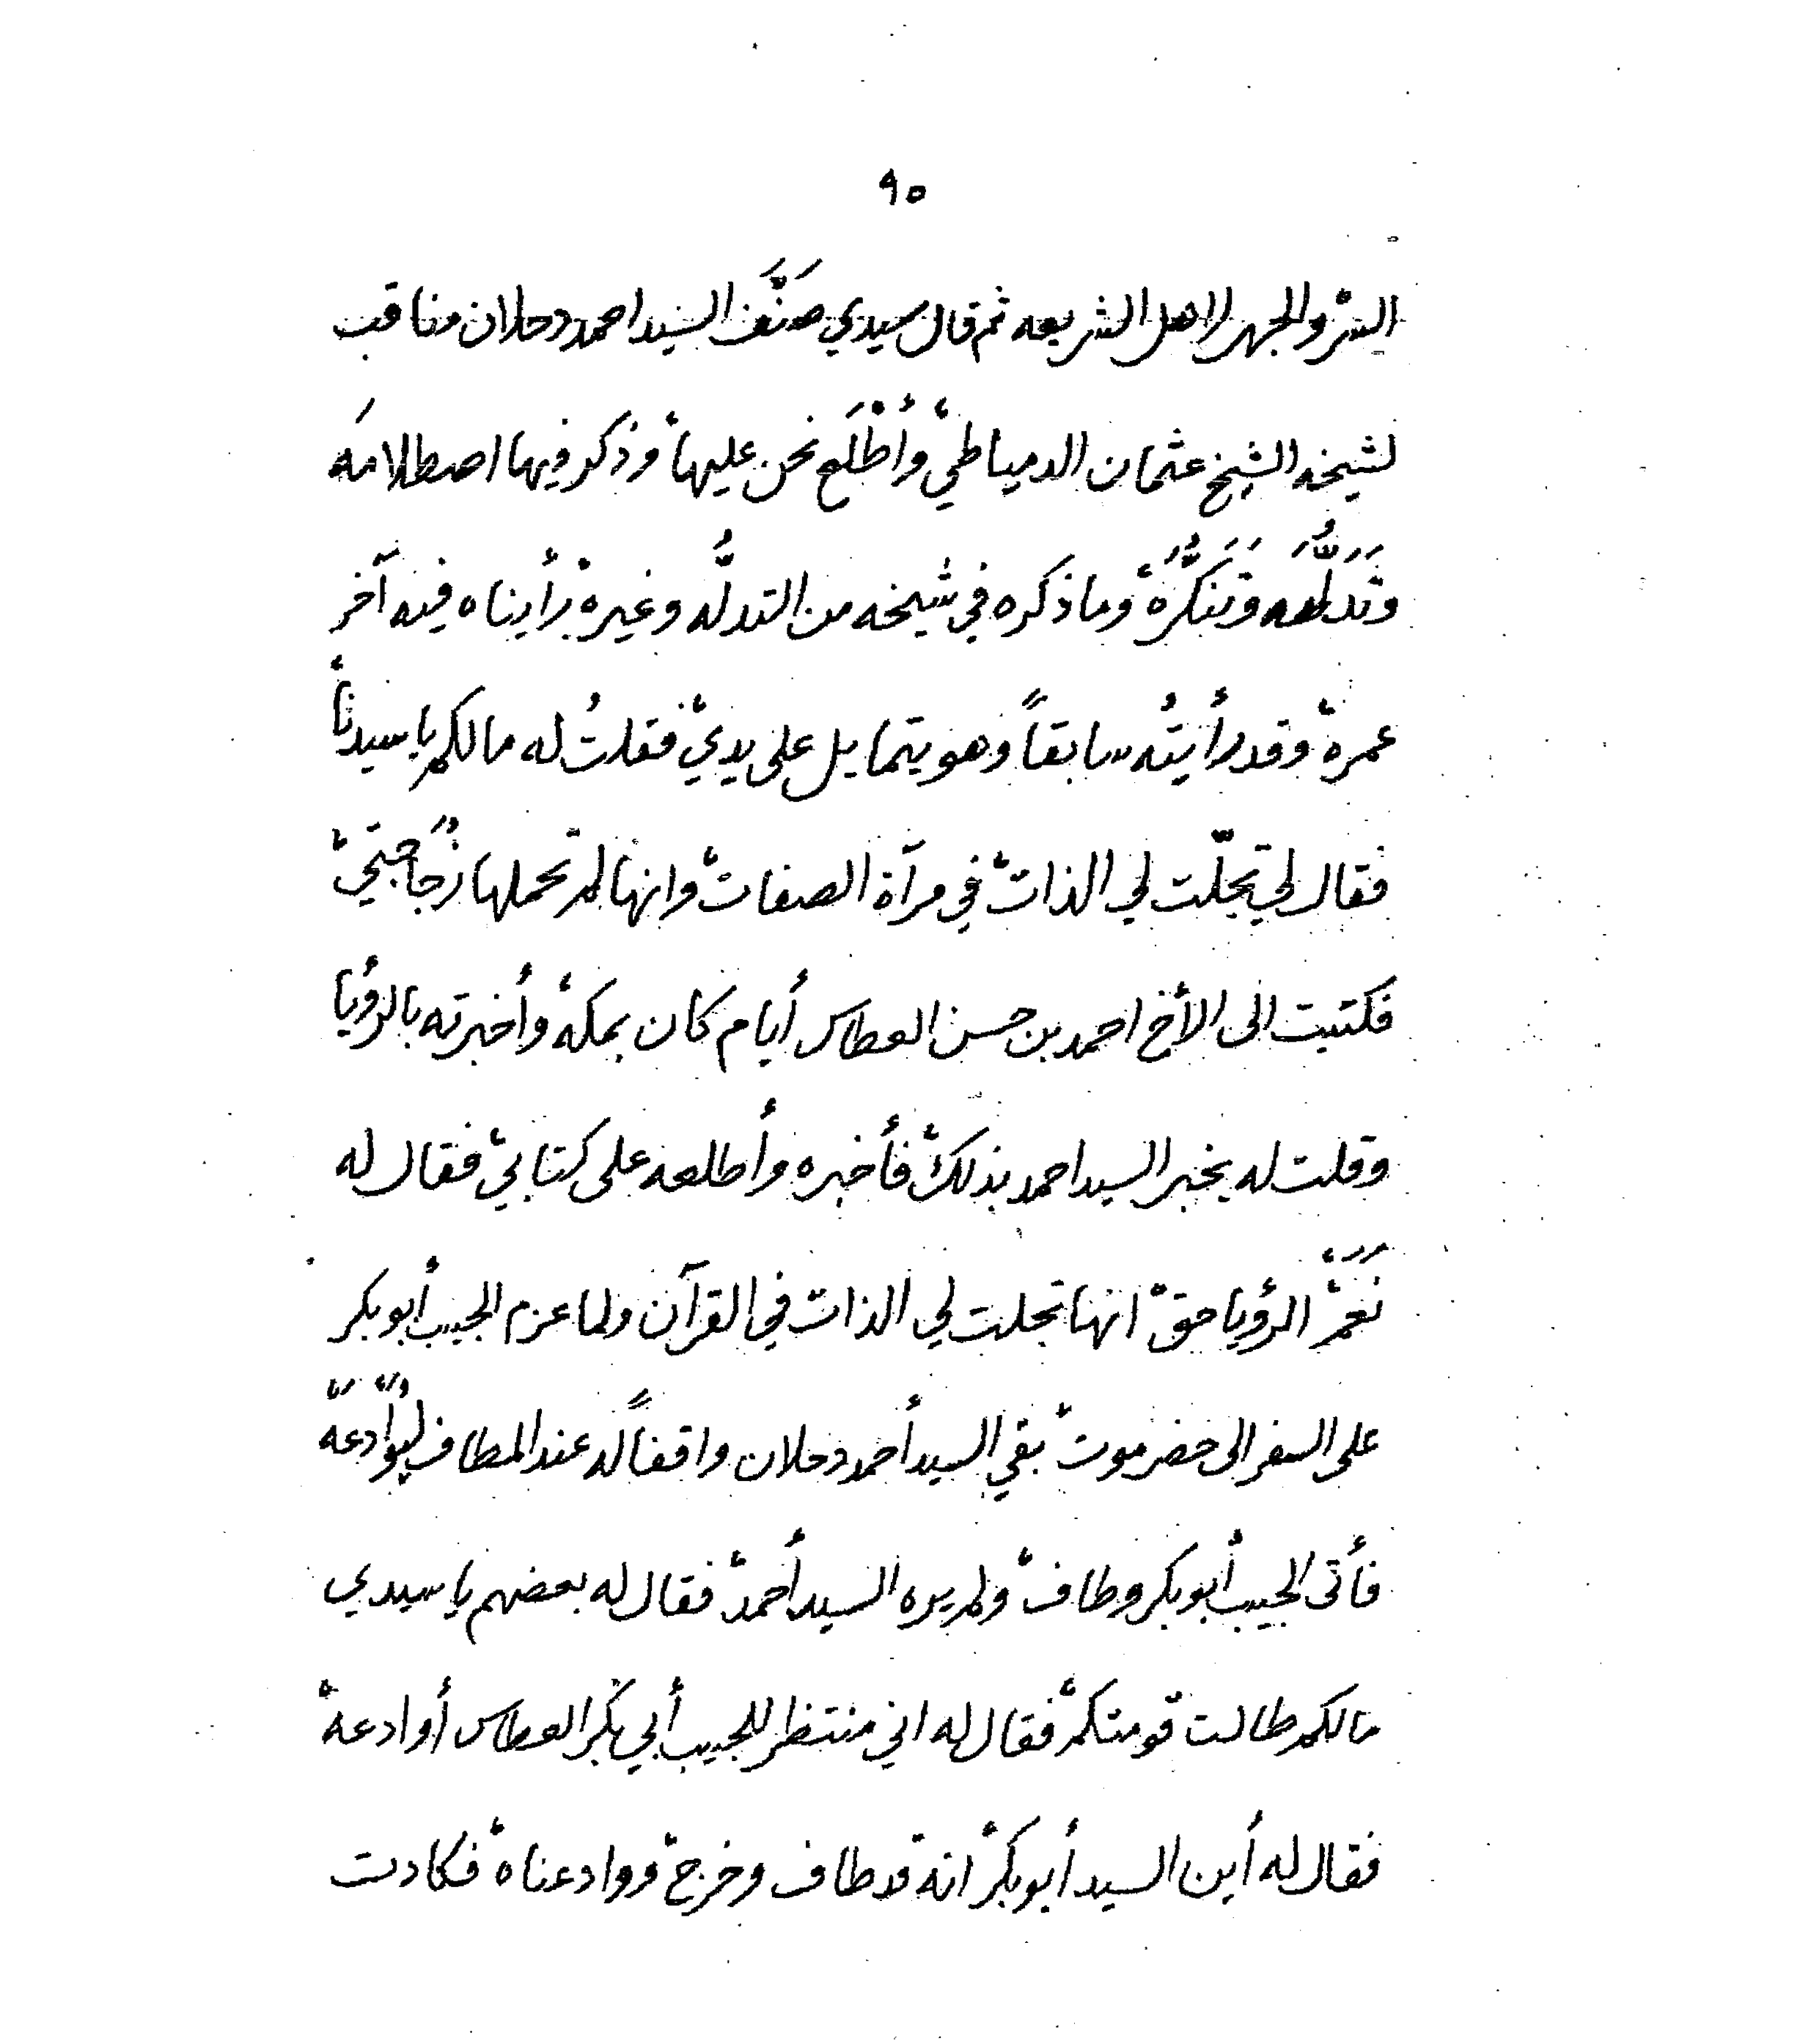 ٩٥
السِّر والجهر لاهل الشريعه ثم قال سيدي صَنَّفَ السيد احمد دحلان مناقب
لشيخه الشيخ عثمان الدمياطيْ وأُطْلَع نحن عليهاْ وذكر فيها اصطلامَه
وتَدَلُّهَه وتَنَكُّرَهْ وما ذكره في شيخه من التدلُّه وغيرهْ رأيناه فيه آخر
عمرهْ وقد رأيتُه سابقاً وهو يتمايل على يديْ فقلتُ له مالكم يا سيدناْ
فقال لي تجلّت لي الذاتْ في مرآة الصفاتْ وانها لم تحملها زُجَاجتيْ
فكتبت الى الأخ احمد بن حسن العطاس أيام كان بمكهْ وأخبرته بالرؤيا
وقلت له يخبر السيد احمد بذلكْ فأخبره وأطلعه على كتابيْ فقال له
نَعَمْ الرؤيا حقْ انها تجلت لي الذات في القرآن ولما عزم الحبيب أبوبكر
على السفر الى حضرموتْ بقي السيد أحمد دحلان واقفاً له عند المطاف ليُوَّادعَهْ
فأتى الحبيب أبوبكر وطافْ ولم يره السيد أحمدْ فقال له بعضهم يا سيدي
مالكم طالت قومتكمْ فقال له اني منتظر للحبيب أبي بكر العطاس أوادعهْ
فقال له أين السيد أبوبكرْ انه قد طاف وخرجْ ووادعناهْ فكادت